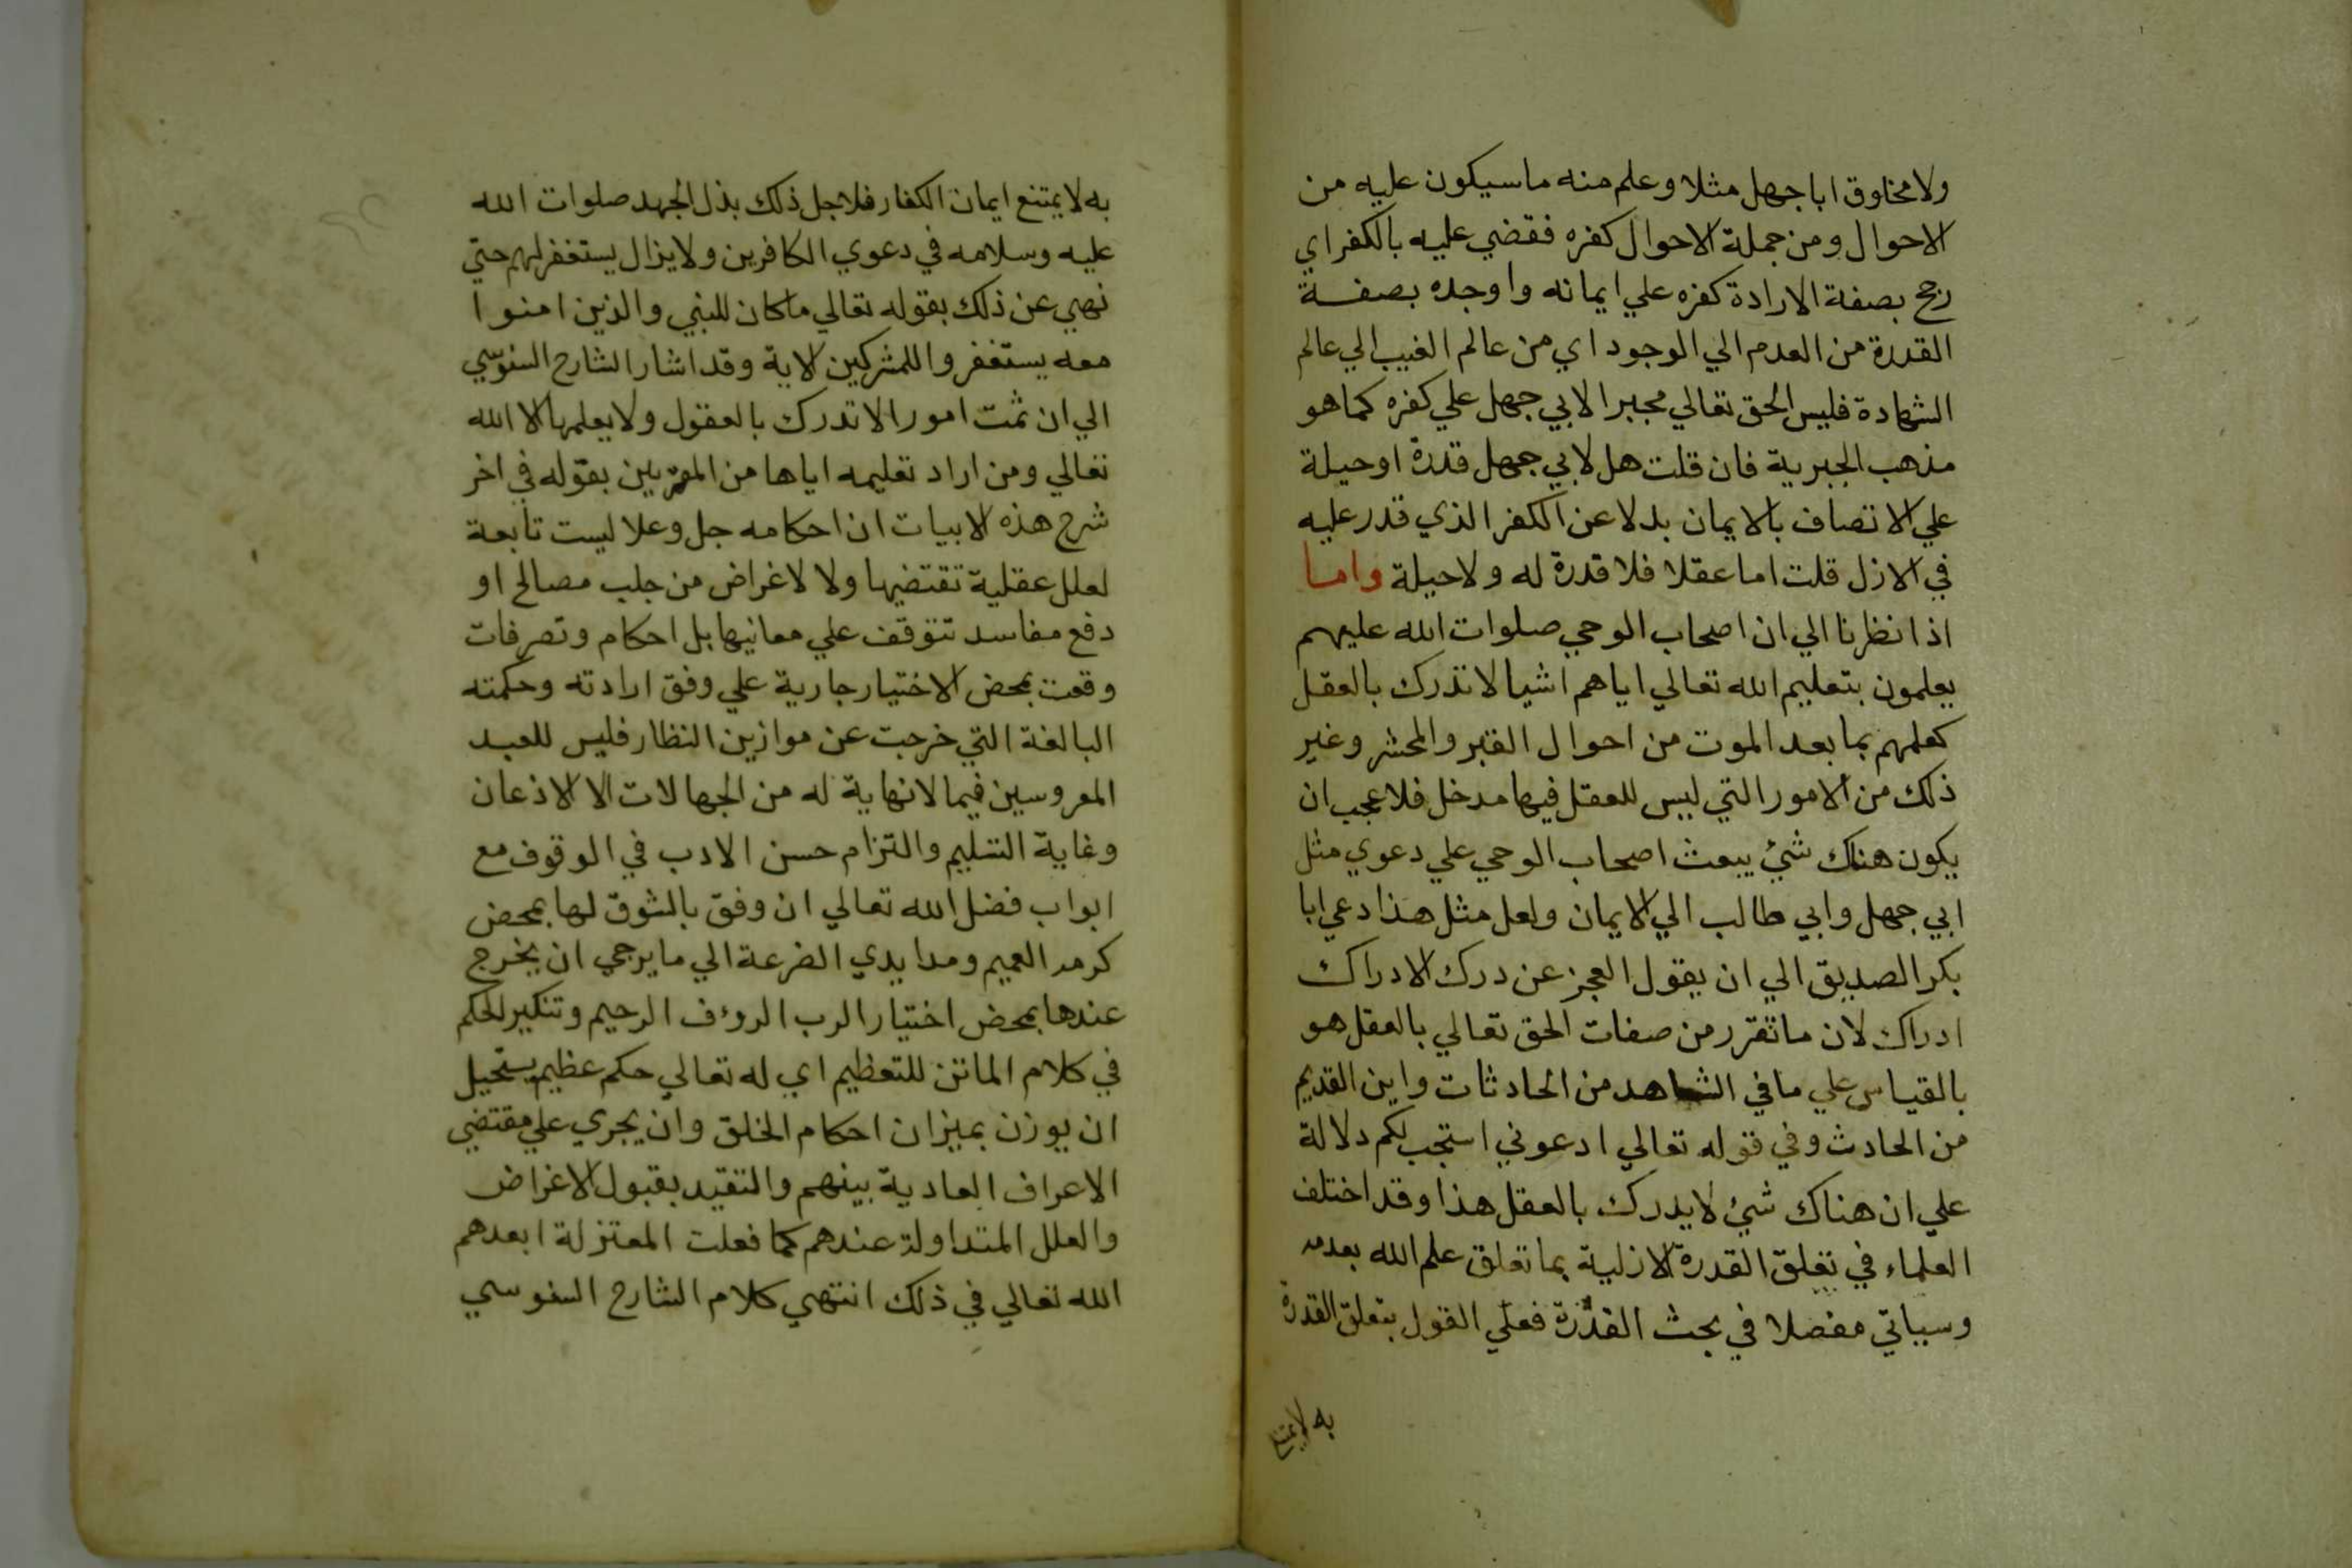 ولا مخلوق ابا جهل مثلا وعلم منه ما سيكون عليه من
الاحوال ومن جملة الاحوال كفره فقضي عليه بالكفر اي
رجح بصفة الارادة كفره علي ايمانه واوجده بصفة
القدرة من العدم الي الوجود اي من عالم الغيب الي عالم
الشهادة فليس الحق تعالي مجبرا لابي جهل علي كفره كما هو
مذهب الجبرية فان قلت هل لابي جهل قدرة او حيلة
علي الاتصاف بالايمان بدلا عن الكفر الذي قدر عليه
في الازل قلت اما عقلا فلا قدرة له ولا حيلة واما
اذا نظرنا الي ان اصحاب الوحي صلوات الله عليهم
يعلمون بتعليم الله تعالي اياهم اشيا لا تدرك بالعقل
كعلمهم بما بعد الموت من احوال القبر والمحشر وغير
ذلك من الامور التي ليس للعقل فيها مدخل فلا عجب ان
يكون هناك شئ يبعث اصحاب الوحي علي دعوي مثل
ابي جهل وابي طالب الي الايمان ولعل مثل هذا دعي ابا
بكر الصديق الي ان يقول العجز عن درك الادراك
ادراك لان ما تقرر من صفات الحق تعالي بالعقل هو
بالقياس علي ما في الشاهد من الحادثات واين القديم
من الحادث وفي قوله تعالي ادعوني استجب لكم دلالة
علي ان هناك شئ لا يدرك بالعقل هذا وقد اختلف
العلماء في تعلق القدرة الازلية بما تعلق علم الله بعدمه
وسياتي مفصلا في بحث القدرة فعلي القول بتعلق القدرة
به لا يمتنع
به لا يمتنع ايمان الكفار فلاجل ذلك بذل الجهد صلوات الله
عليه وسلامه في دعوي الكافرين ولا يزال يستغفر لهم حتي
نهي عن ذلك بقوله تعالي ما كان للنبي والذين امنوا
معه يستغفروا للمشركين الاية وقد اشار الشارح السنوسي
الي ان ثمت امورا لا تدرك بالعقول ولا يعلمها الا الله
تعالي ومن اراد تعليمه اياها من المقربين بقوله في اخر
شرح هذه الابيات ان احكامه جل وعلا ليست تابعة
لعلل عقلية تقتضيها ولا لاغراض من جلب مصالح او
دفع مفاسد تتوقف علي معانيها بل احكام وتصرفات
وقعت بمحض الاختيار جارية علي وفق ارادته وحكمته
البالغة التي خرجت عن موازين النظار فليس للعبد
المعروسين فيما لا نهاية له من الجهالات الا الاذعان
وغاية التسليم والتزام حسن الادب في الوقوف مع
ابواب فضل الله تعالي ان وفق بالشوق لها بمحض
كرمه العميم ومد ايدي الضرعة الي ما يرجي ان يخرج
عندها بمحض اختيار الرب الروءف الرحيم وتنكير الحكم
في كلام الماتن للتعظيم اي له تعالي حكم عظيم يستحيل
ان يوزن بميزان احكام الخلق وان يجري علي مقتضي
الاعراف العادية بينهم والتقيد بقبول الاغراض
والعلل المتداولة عندهم كما فعلت المعتزلة ابعدهم
الله تعالي في ذلك انتهي كلام الشارح السنوسي